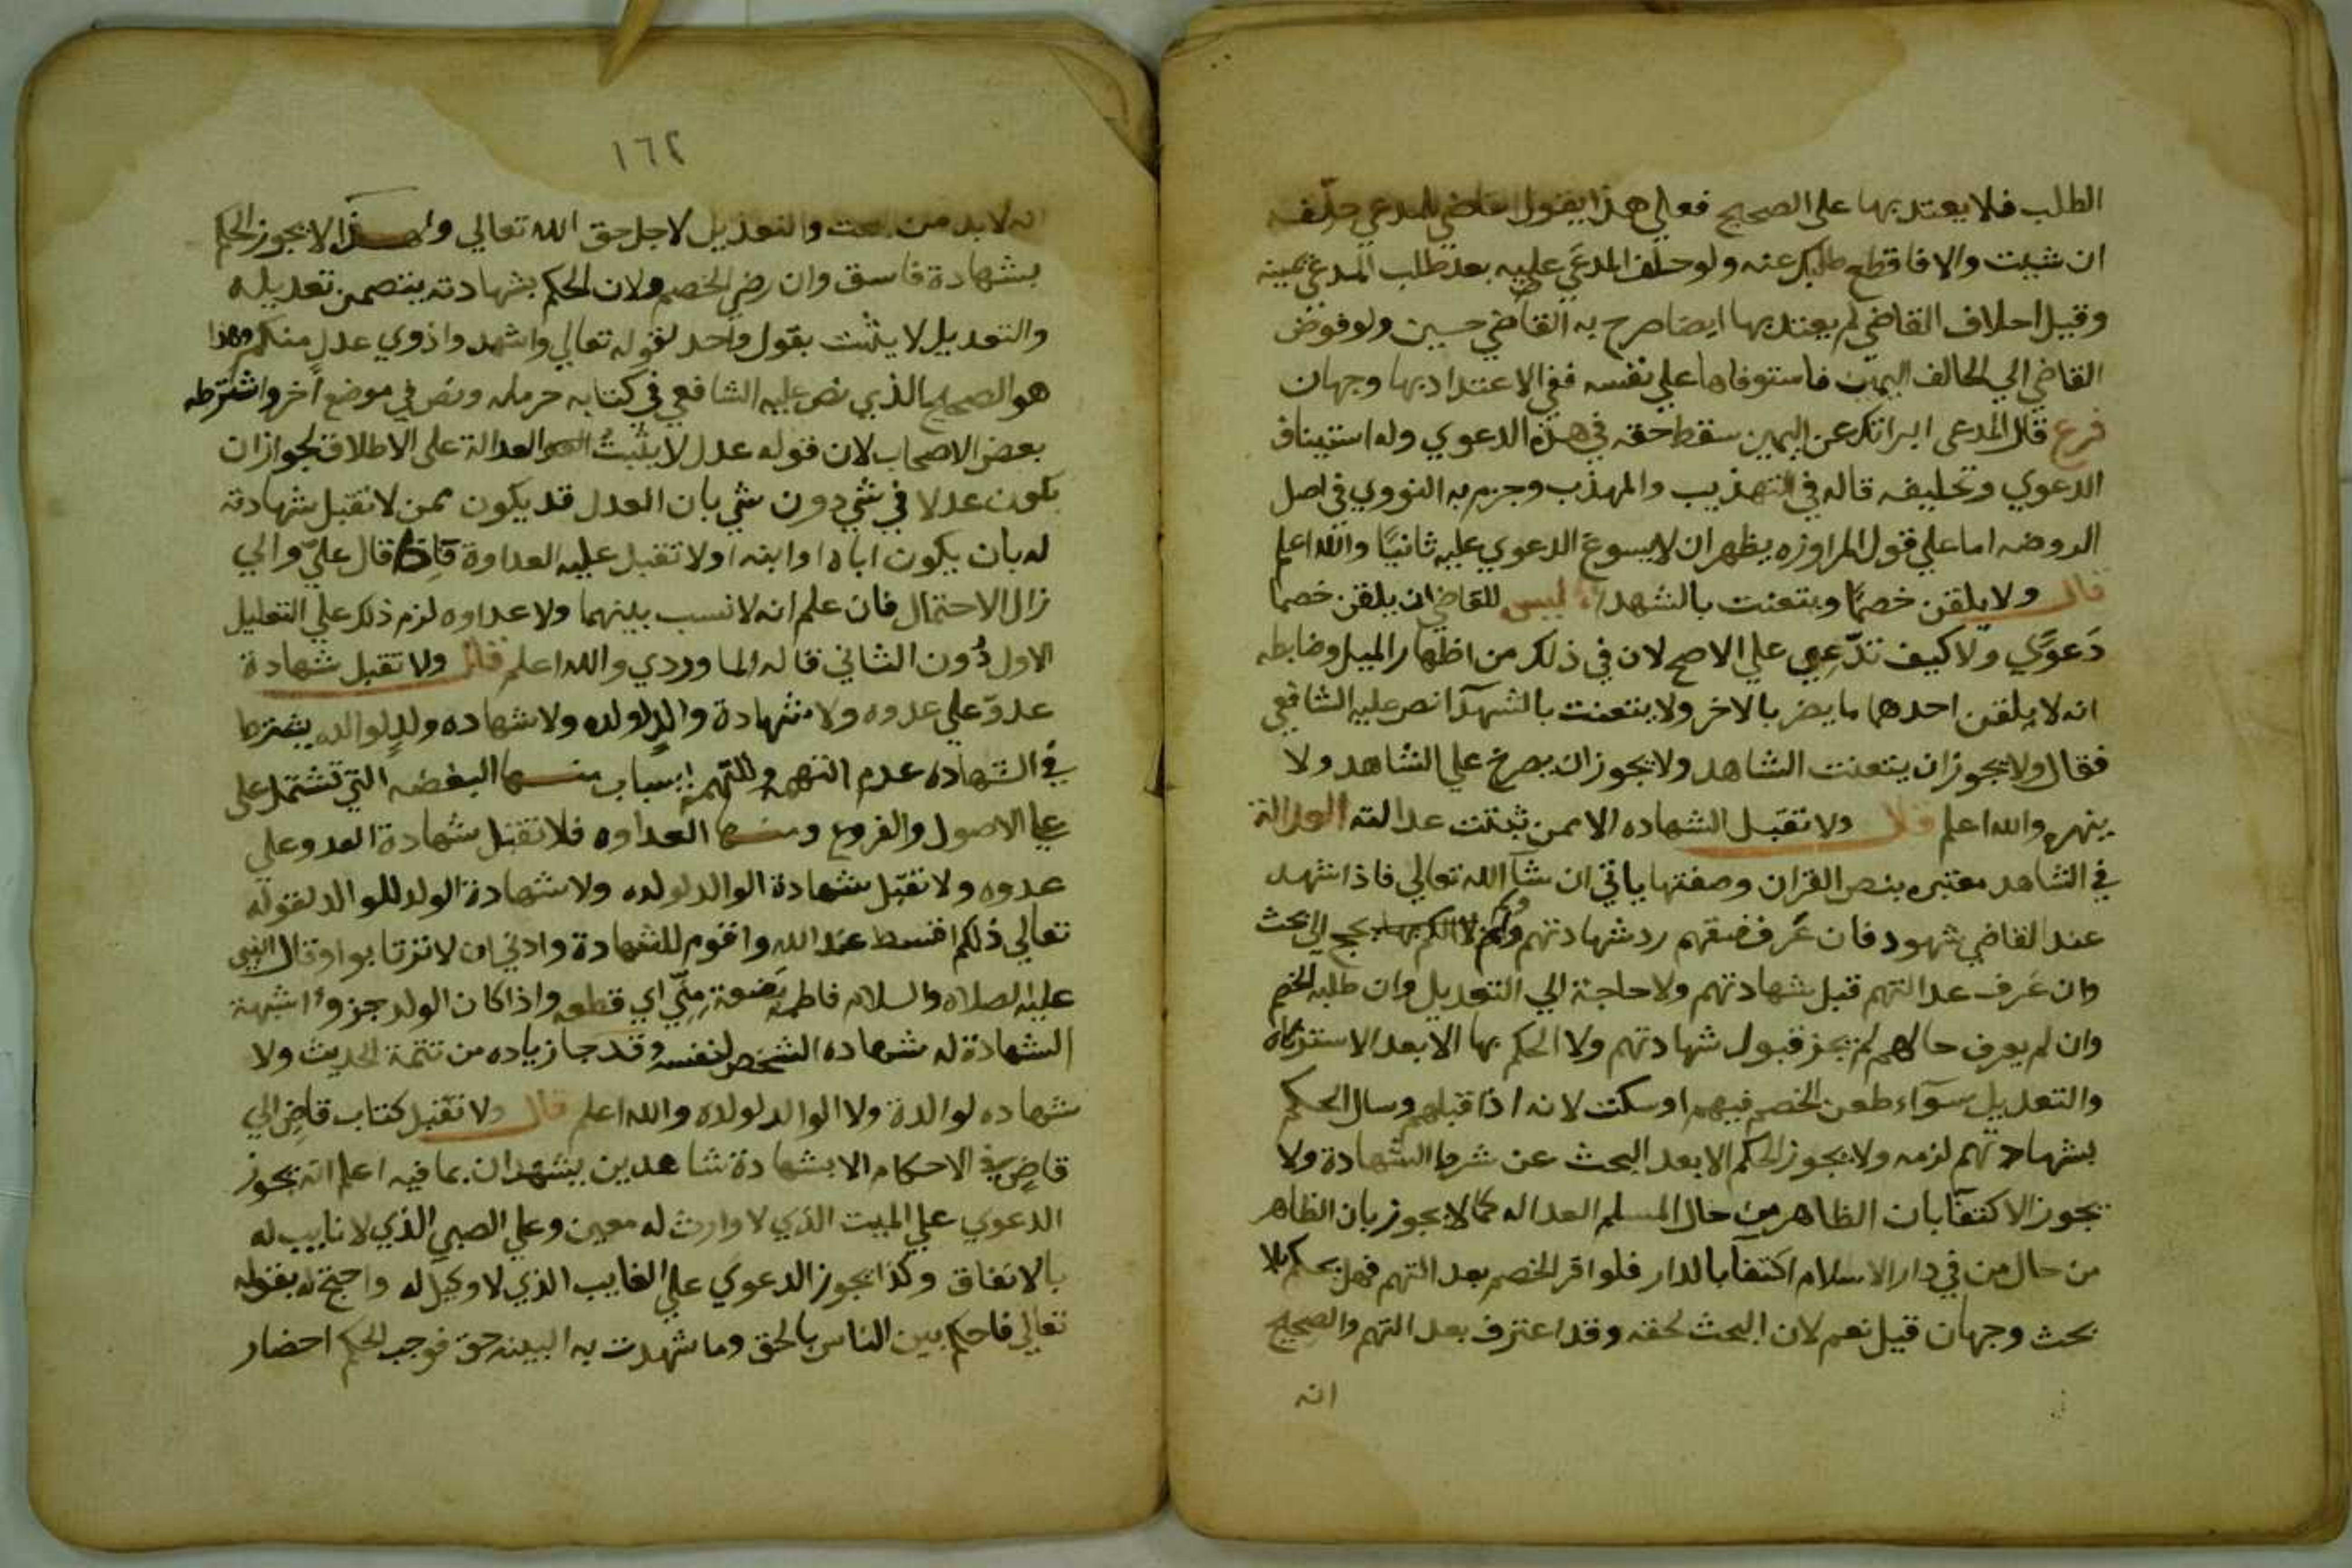 الطلب فلا يعتد بها علي الصحيح فعلي هذا يقول القاضي للمدعي حلفه
ان شيت والا فاقطع طلبك عنه ولو حلف المدعَي عليه بعد طلب المدعي يمينه
وقبل احلاف القاضي لم يعتد بها ايضا صرح به القاضي حسين ولو فوض
القاضي الي الحالف اليمين فاستوفاها علي نفسه ففي الاعتداد بها وجهان
فرع قال المدعى ابراتك عن اليمين سقط حقه في هذه الدعوي وله استيناف
الدعوي وتحليفه قاله في التهذيب والمهذب وجزم به النووي في اصل
الروضه اما علي قول المراوزه يظهر ان لا يسوغ الدعوي عليه ثانيًا والله اعلم
قال ولا يلقن خصمًا ويتعنت بالشهدا ليس للقاضي ان يلقن خصما
دَعوَي ولا كيف تدّعِي علي الاصح لان في ذلك من اظهار الميل وضابطه
انه لا يلقن احدهما ما يضر بالاخر ولا يتعنت بالشهدآ نص عليه الشافعي
فقال ولا يجوز ان يتعنت الشاهد ولا يجوز ان يصرخ علي الشاهد ولا
ينهره والله اعلم قال ولا تقبل الشهاده الا ممن ثبتت عدالته العدالة
في الشاهد معتبره بنص القران وصفتها ياتي ان شآ الله تعالي فاذا شهد
عند القاضي شهود فان عَرف فسقهم رد شهادتهم ولم يحتج الي بحث
وان عَرف عدالتهم قبل شهادتهم ولا حاجة الي التعديل وان طلبه الخصم
وان لم يعرف حالهم لم يجز قبول شهادتهم ولا الحكم بها الا بعد الاستزكاة
والتعديل سوآء طعن الخصم فيهم او سكت لانه اذا قبلهم وسال الحكم
بشهادتهم لزمه ولا يجوز الحكم الا بعد البحث عن شرط الشهادة ولا
يجوز الاكتفآ بان الظاهر من حال المسلم العداله كما لا يجوز بان الظاهر
من حال من في دار الاسلام اكتفآ بالدار فلو اقر الخصم بعدالتهم فهل يحكم بلا
بحث وجهان قيل نعم لان البحث لحقه وقد اعترف بعدالتهم والصحيح
انه
١٦٢
انه لا بد من البحث والتعديل لاجل حق الله تعالي ولهذا لا يجوز الحكم
بشهادة فاسق وان رضي الخصم ولان الحكم بشهادته يتضمن تعديله
والتعديل لا يثبت بقول واحد لقوله تعالي واشهدوا ذوي عدل منكم وهذا
هو الصحيح الذي نص عليه الشافعي في كتابه حرمله ونص في موضع آخر واشترطه
بعض الاصحاب لان قوله عدل لا يثبت العدالة علي الاطلاق لجواز ان
يكون عدلا في شي دون شي بان العدل قد يكون ممن لا تقبل شهادته
له بان يكون اباه او ابنه او لا تقبل عليه العداوة فاذا قال عليّ ولي
زال الاحتمال فان علم انه لا نسب بينهما ولا عداوه لزم ذلك علي التعليل
الاول دُون الثاني قاله الماوردي والله اعلم قال ولا تقبل شهادة
عدوّ علي عدوه ولا شهادة والدٍ لولده ولا شهاده ولدٍ لوالده يشترط
في الشهاده عدم التهمه وللتهمة اسباب منها البعضيه التي تشتمل علي
علي الاصول والفروع ومنها العداوه فلا تقبل شهادة العدو علي
عدوه ولا تقبل شهادة الوالد لولده ولا شهادة الولد للوالد لقوله
تعالي ذلكم اقسط عند الله واقوم للشهادة وادني ان لا ترتابوا وقال النبي
عليه الصلاه والسلام فاطمه بَضعة منّي اي قطعه واذا كان الولد جزوًا اشبهة
الشهادة له شهاده الشخص لنفسه وقد جا زياده من تتمة الحديث ولا
شهاده لوالدة ولا الوالد لولده والله اعلم قال ولا تقبل كتاب قاضٍ الي
قاضٍ في الاحكام الا بشهادة شاهدين يشهدان بما فيه اعلم انه يجوز
الدعوي علي الميت الذي لا وارث له معين وعلي الصبي الذي لا نايب له
بالاتفاق وكذا يجوز الدعوي علي الغايب الذي لا وكيل له واحتج له بقوله
تعالي فاحكم بين الناس بالحق وما شهدت به البينه حق فوجب الحكم احضار